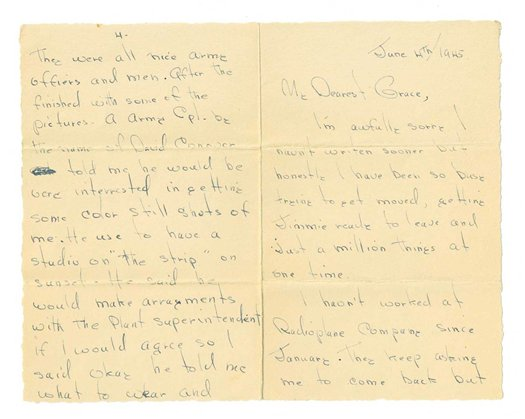 4.
They were all nice army
offiers and men. After the
finished with some of the
pictures. A Army Cpl. by
the name of David Conover
told me he would be
very interested in getting
some color still shots of
me. He use to have a
studio on "the strip" on
sunset. He said he
would make arragments
with the Plant superintendent
if I would agree so I
said okay. he told me
what to wear and
June 4th/1945
My Dearest Grace,
I'm awfully sorry I
havn't writen sooner but
honestly I have been so busy
trying to get moved, getting
Jimmie ready to leave and
just a million things at
one time.
I havn't worked at
Radioplane Company since
January. They keep asking
me to come back but